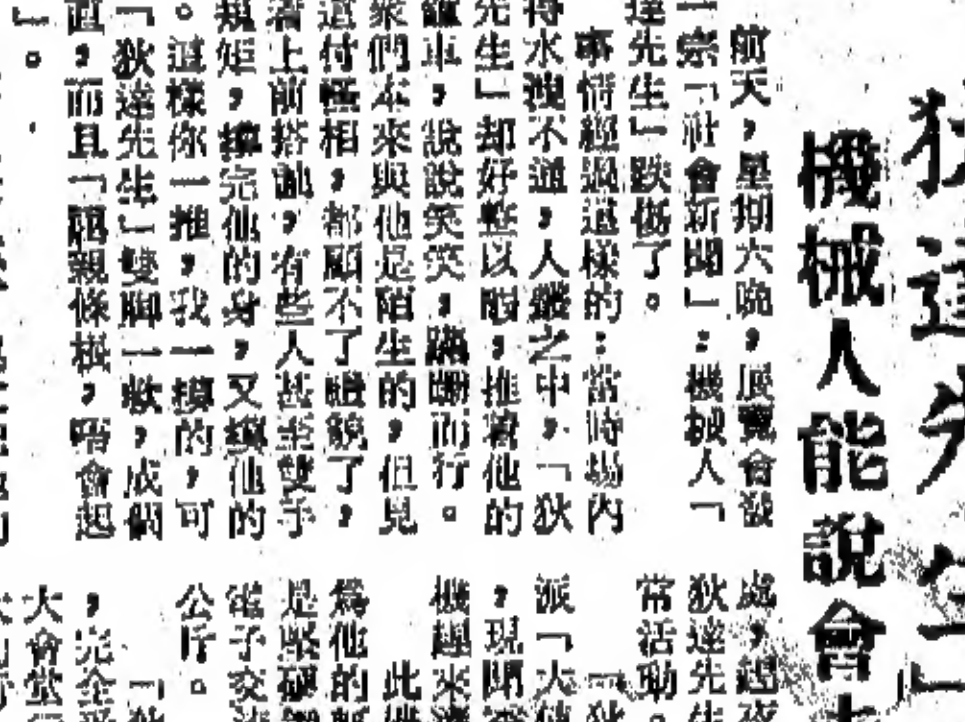 狄達先生」
機械人能說會
前天，星期六晚，展覽會發
一宗「社會新聞」：機械人「
達先生」跌傷了。
事情經過這樣的：當時場內
得水洩不通，人叢之中，「狄
先生」却好整以暇，推着他的
車，說說笑笑，蹣跚而行。
衆們本來與他是陌生的，但見
這付怪相，都顧不了禮貌了，
着上前搭訕，有些人甚至雙手
規矩，摸完他的身，又摸他的
。這樣你一推，我一摸的，可
「狄達先生」雙脚一軟，成個
直，而且「親條棍，唔會起
」。
處，
狄達先生
常活動。
「狄
派「大使
，現開
機趣來
此
爲他的
是堅硬
電子交
公斤。
「狄
，完全
大會堂